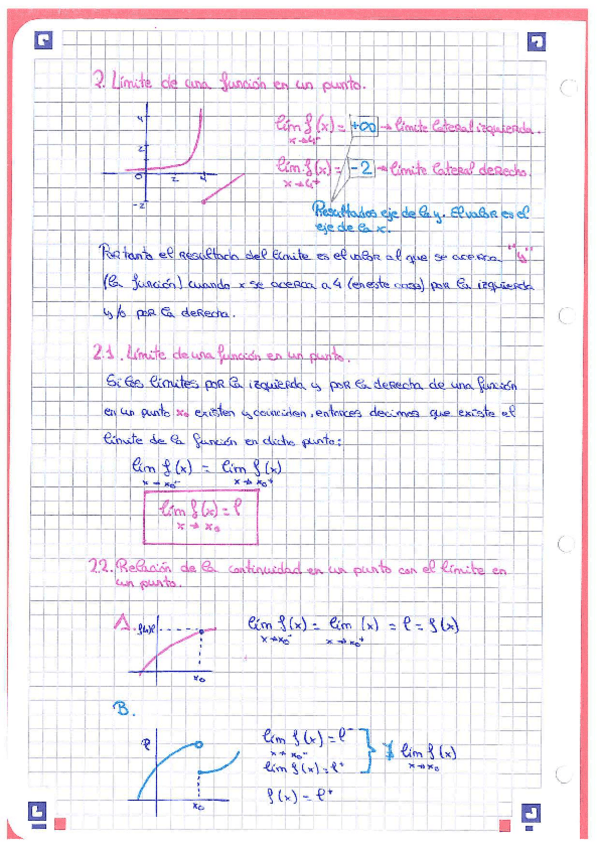 2. Límite de una función en un punto.
4
2
0 2 4
-2
lím f(x) = +∞ → límite lateral izquierda.
x→4⁻
lím f(x) = -2 → límite lateral derecho.
x→4⁺
Resultados eje de la y. El valor es el
eje de la x.
Por tanto el resultado del límite es el valor al que se acerca "y"
(la función) cuando x se acerca a 4 (en este caso) por la izquierda
y/o por la derecha.
2.1. Límite de una función en un punto.
Si los límites por la izquierda y por la derecha de una función
en un punto x₀ existen y coinciden, entonces decimos que existe el
límite de la función en dicho punto:
lím f(x) = lím f(x)
x→x₀⁻ x→x₀⁺
lím f(x) = l
x→x₀
2.2. Relación de la continuidad en un punto con el límite en
un punto.
A.
x₀
lím f(x) = lím (x) = l = f(x)
x→x₀⁻ x→x₀⁺
B.
l
x₀
lím f(x) = l⁻
x→x₀⁻
lím f(x) = l⁺
∄ lím f(x)
x→x₀
f(x) = l⁺